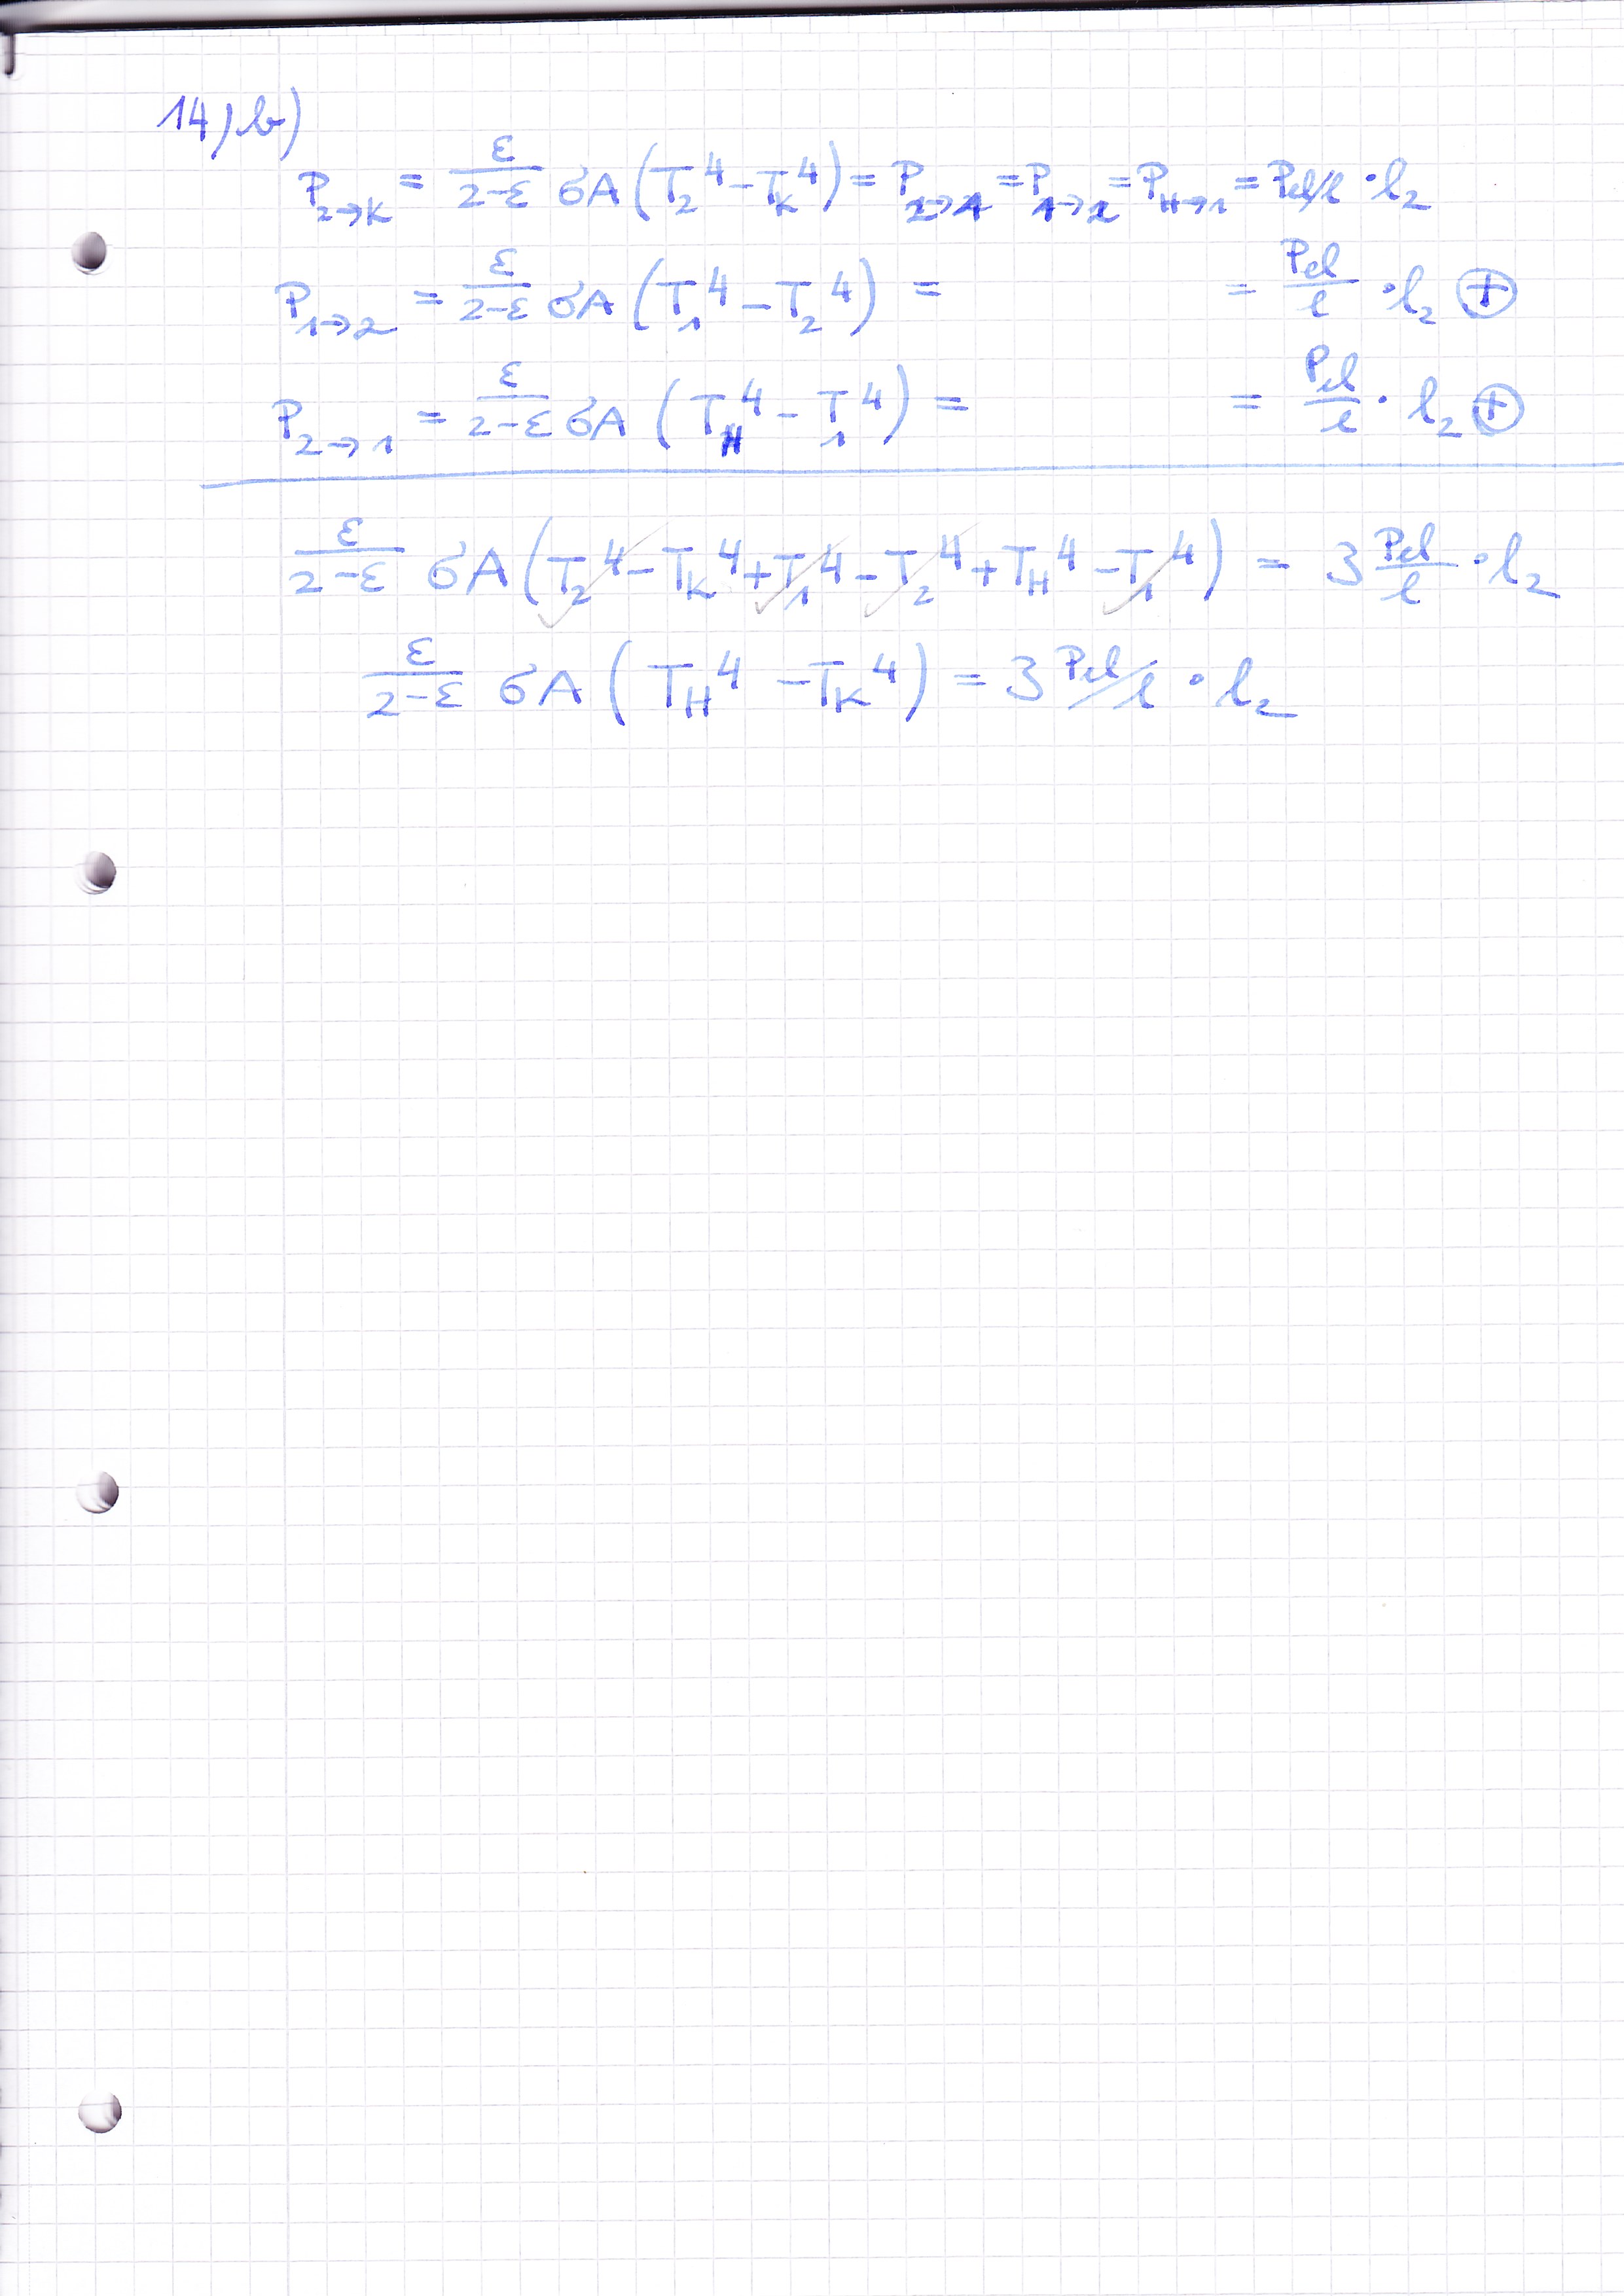 14) b)
P_{2→K} = \frac{ε}{2-ε} σA (T_2^4 - T_K^4) = P_{2→1} = P_{1→2} = P_{H→1} = P_{el}/l · l_2
P_{1→2} = \frac{ε}{2-ε} σA (T_1^4 - T_2^4) = = \frac{P_{el}}{l} · l_2 ⊕
P_{2→1} = \frac{ε}{2-ε} σA (T_H^4 - T_1^4) = = \frac{P_{el}}{l} · l_2 ⊕
\frac{ε}{2-ε} σA (T_2^4 - T_K^4 + T_1^4 - T_2^4 + T_H^4 - T_1^4) = 3 \frac{P_{el}}{l} · l_2
\frac{ε}{2-ε} σA (T_H^4 - T_K^4) = 3 P_{el}/l · l_2